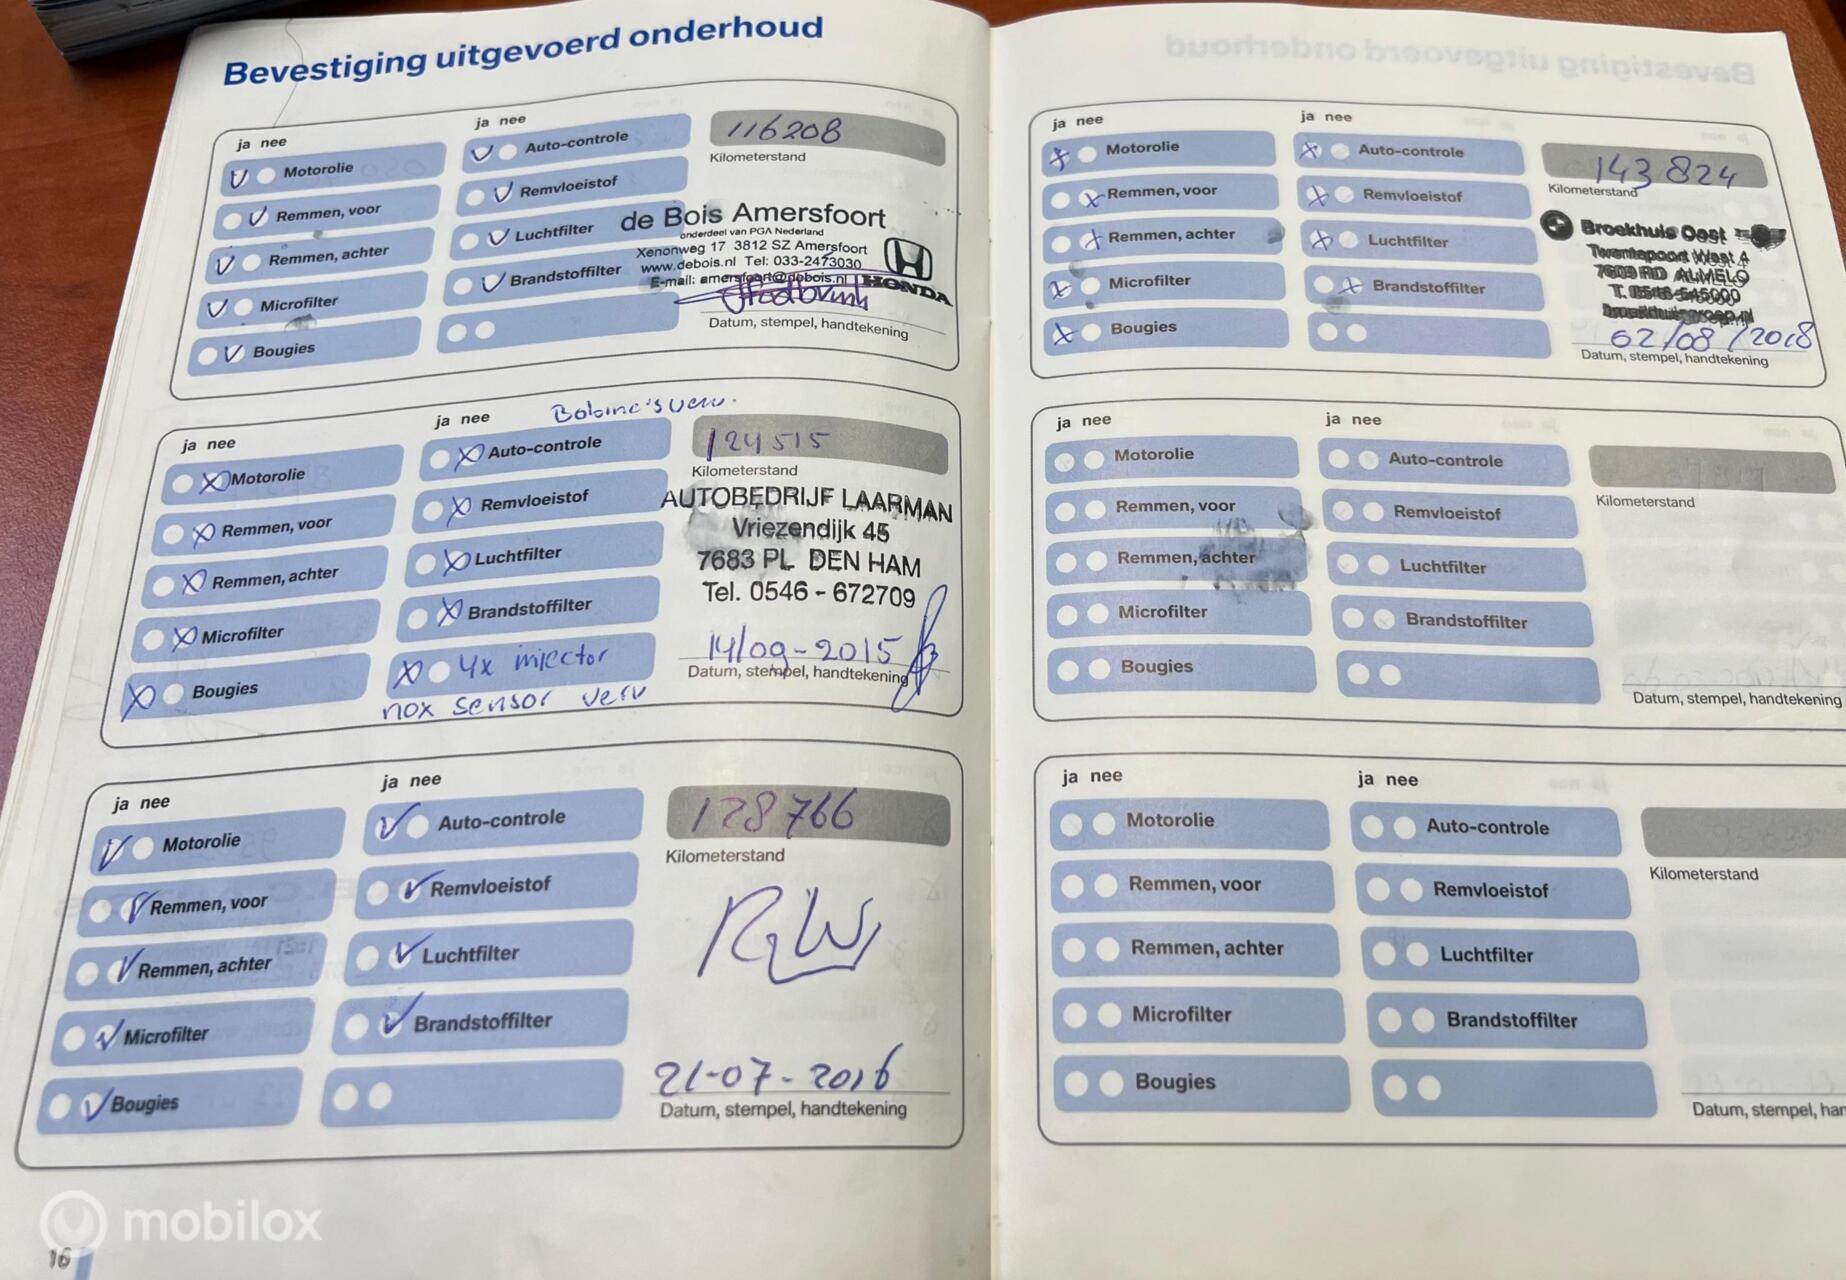 Bevestiging uitgevoerd onderhoud
ja nee
Motorolie
Remmen, voor
Remmen, achter
Microfilter
Bougies
ja nee
Auto-controle
Remvloeistof
Luchtfilter
Brandstoffilter
116208
Kilometerstand
de Bois Amersfoort
onderdeel van PGA Nederland
Xenonweg 17 3812 SZ Amersfoort
www.debois.nl Tel: 033-2473030
E-mail: amersfoort@debois.nl
HONDA
Datum, stempel, handtekening
ja nee
Motorolie
Remmen, voor
Remmen, achter
Microfilter
Bougies
ja nee
Bobine's verv.
Auto-controle
Remvloeistof
Luchtfilter
Brandstoffilter
4x injector
nox sensor verv
124515
Kilometerstand
AUTOBEDRIJF LAARMAN
Vriezendijk 45
7683 PL DEN HAM
Tel. 0546 - 672709
14/09-2015
Datum, stempel, handtekening
ja nee
Motorolie
Remmen, voor
Remmen, achter
Microfilter
Bougies
ja nee
Auto-controle
Remvloeistof
Luchtfilter
Brandstoffilter
128766
Kilometerstand
21-07-2016
Datum, stempel, handtekening
16
mobilox
ja nee
Motorolie
Remmen, voor
Remmen, achter
Microfilter
Bougies
ja nee
Auto-controle
Remvloeistof
Luchtfilter
Brandstoffilter
143824
Kilometerstand
Broekhuis Oost
Twentepoort West 4
7609 RD ALMELO
T. 0546-545000
broekhuisgroep.nl
02/08/2018
Datum, stempel, handtekening
ja nee
Motorolie
Remmen, voor
Remmen, achter
Microfilter
Bougies
ja nee
Auto-controle
Remvloeistof
Luchtfilter
Brandstoffilter
Kilometerstand
Datum, stempel, handtekening
ja nee
Motorolie
Remmen, voor
Remmen, achter
Microfilter
Bougies
ja nee
Auto-controle
Remvloeistof
Luchtfilter
Brandstoffilter
Kilometerstand
Datum, stempel, har